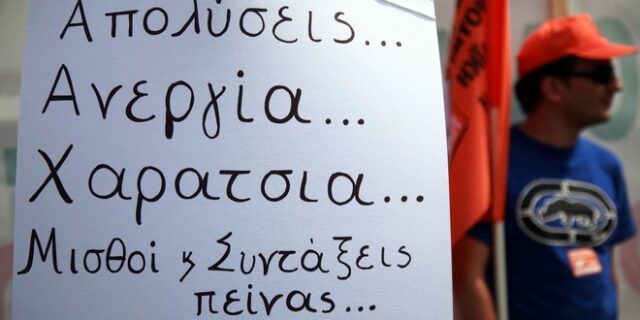 Απολύσεις...
Ανεργία...
Χαράτσια...
Μισθοί κ Συντάξεις
πείνας...